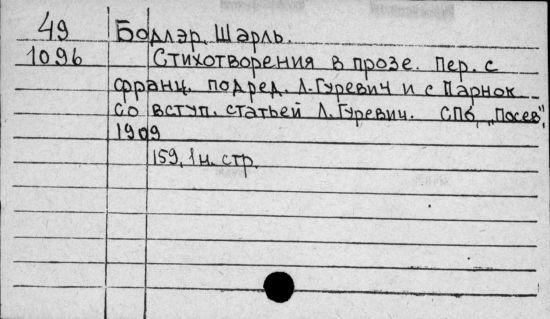 49 Бодлэр, Шарль.
1096 Стихотворения в прозе. Пер. с
франц. подред. Л.Гуревич и с Парнок
со вступ. статьей Л.Гуревич. СПб, „Посев",
1909
159, 1н. стр.